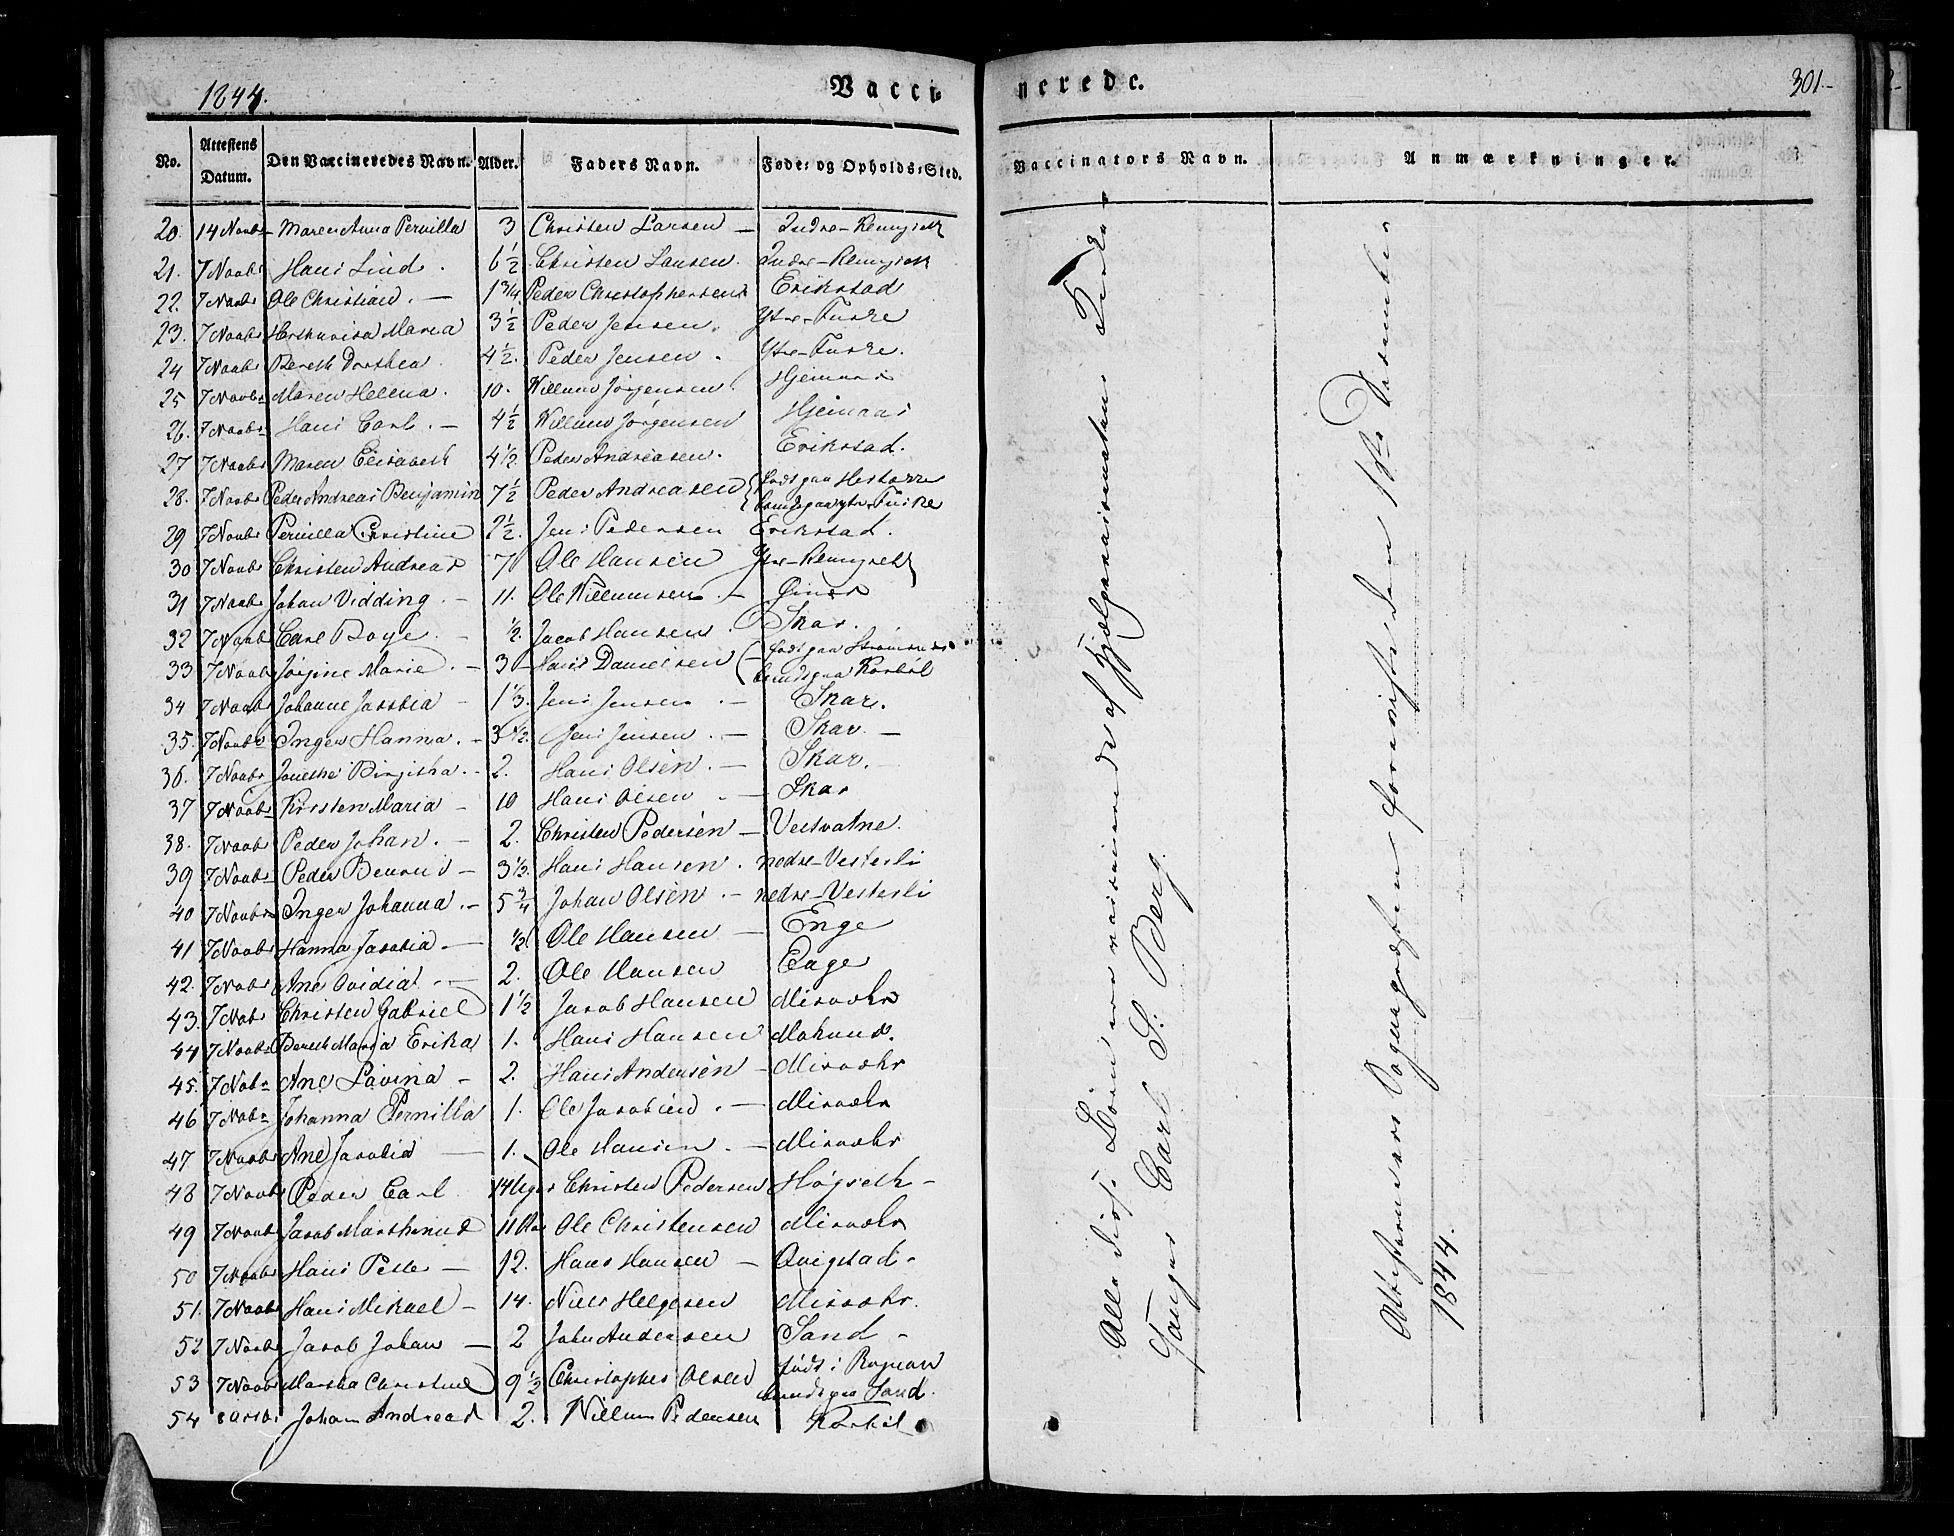 1844.
Vacci-
nerede.
301-
No. Attestens Datum. Den Vaccineredes Navn. Alder. Faders Navn. Føde- og Opholds-Sted.
Vaccinators Navn. Anmærkninger.
20. 14 Novbr Maren Anna Pernilla 3 Christen Larsen — Indre-
21. 7 Novbr Hans Lind. 6 1/2 Christen Larsen. Indre-
22. 7 Novbr Ole Christian. — 1 3/4 Peder Christophersen Erikstad
23. 7 Novbr Maria 3 1/2 Peder Jensen. Ytre-Fuske
24 7 Novbr Bereth Dorthea 4 1/2. Peder Jensen. Ytre-Fuske.
25 7 Novbr Maren Helena. 10. Willum Jørgensen.
26. 7 Novbr Hans Carl. — 4 1/2 Willum Jørgensen Hjemaas
27 7 Novbr Maren Elisabeth 4 1/2. Peder Andreasen. Erikstad.
28. 7 Novbr Peder Andreas Benjamin 7 1/2 Peder Andreasen født paa
boende paa ytre Fuske
29 7 Novbr Pernilla Christine 2 1/2. Jens Pedersen Erikstad.
30 7 Novbr Christen Andreas 7 Ole Hansen Ytre-
31 7 Novbr Johan Vidding — 11. Ole Willumsen. —
32 7 Novbr Carl Boye. — 1/2. Jacob Hansen. Skar.
33. 7 Novbr Jørgine Marie. — 3 — Hans Danielsen født paa
boende paa
34 7 Novbr Johanne Jacobia — 1 1/3. Jens Jensen. — Skar.
35. 7 Novbr Inger Hanna. — 3 1/2. Jens Jensen. — Skar. —
36. 7 Novbr Birgitha. — 2. Hans Olsen. — Skar.
37 7 Novbr Kirsten Maria — 10 Hans Olsen — Skar
38. 7 Novbr Peder Johan. — 2. Christen Pedersen — Vestvatne.
39 7 Novbr Peder — 3 1/2. Hans Hansen. nedre-Vesterli
40 7 Novbr Inger Johanna. — 5 3/4 Johan Olsen. — nedre-Vesterli
41 7 Novbr Hanna Jacobia. — 1/2 Ole Hansen — Enge
42. 7 Novbr Ane Ovidia. — 2. Ole Hansen Enge
43. 7 Nobr Christen Gabriel 1 1/2 Jacob Hansen Misvæhr
44 7 Novbr Bereth Maria Erika 1. Hans Hansen
45. 7 Nobr Ane Lovina — 2. Hans Andersen — Misvæhr
46 7 Nobr Johanna Pernilla 1. Ole Jacobsen. — Misvæhr
47 7 Novbr Ane Jacobia — 1. Ole Hansen. — Misvæhr
48 7 Novbr Peder Carl 14 Uger Christen Pedersen Høgseth —
49 7 Novbr Jacob 11 Ole Christensen Misvæhr
50 7 Novbr Hans Peter — 12. Hans Hansen — Qvigstad —
51. 7 Novbr Hans Mikael — 14. Niels Helgesen Misvæhr.
52 7 Novbr Jacob Johan — 2 John Andersen Sand —
53 7 Novbr Martha Christine 9 1/2 Christopher Olsen født i Rognan
boende paa Sand.
54 Johan Andreas 2. Willum Pedersen
Alle disse Børn ere vaccinerede af Hjælpevaccinateur Kirke-
Sanger Carl S. Berg.
Attesterne vare Sognepræsten forevniste den 18de December
1844.